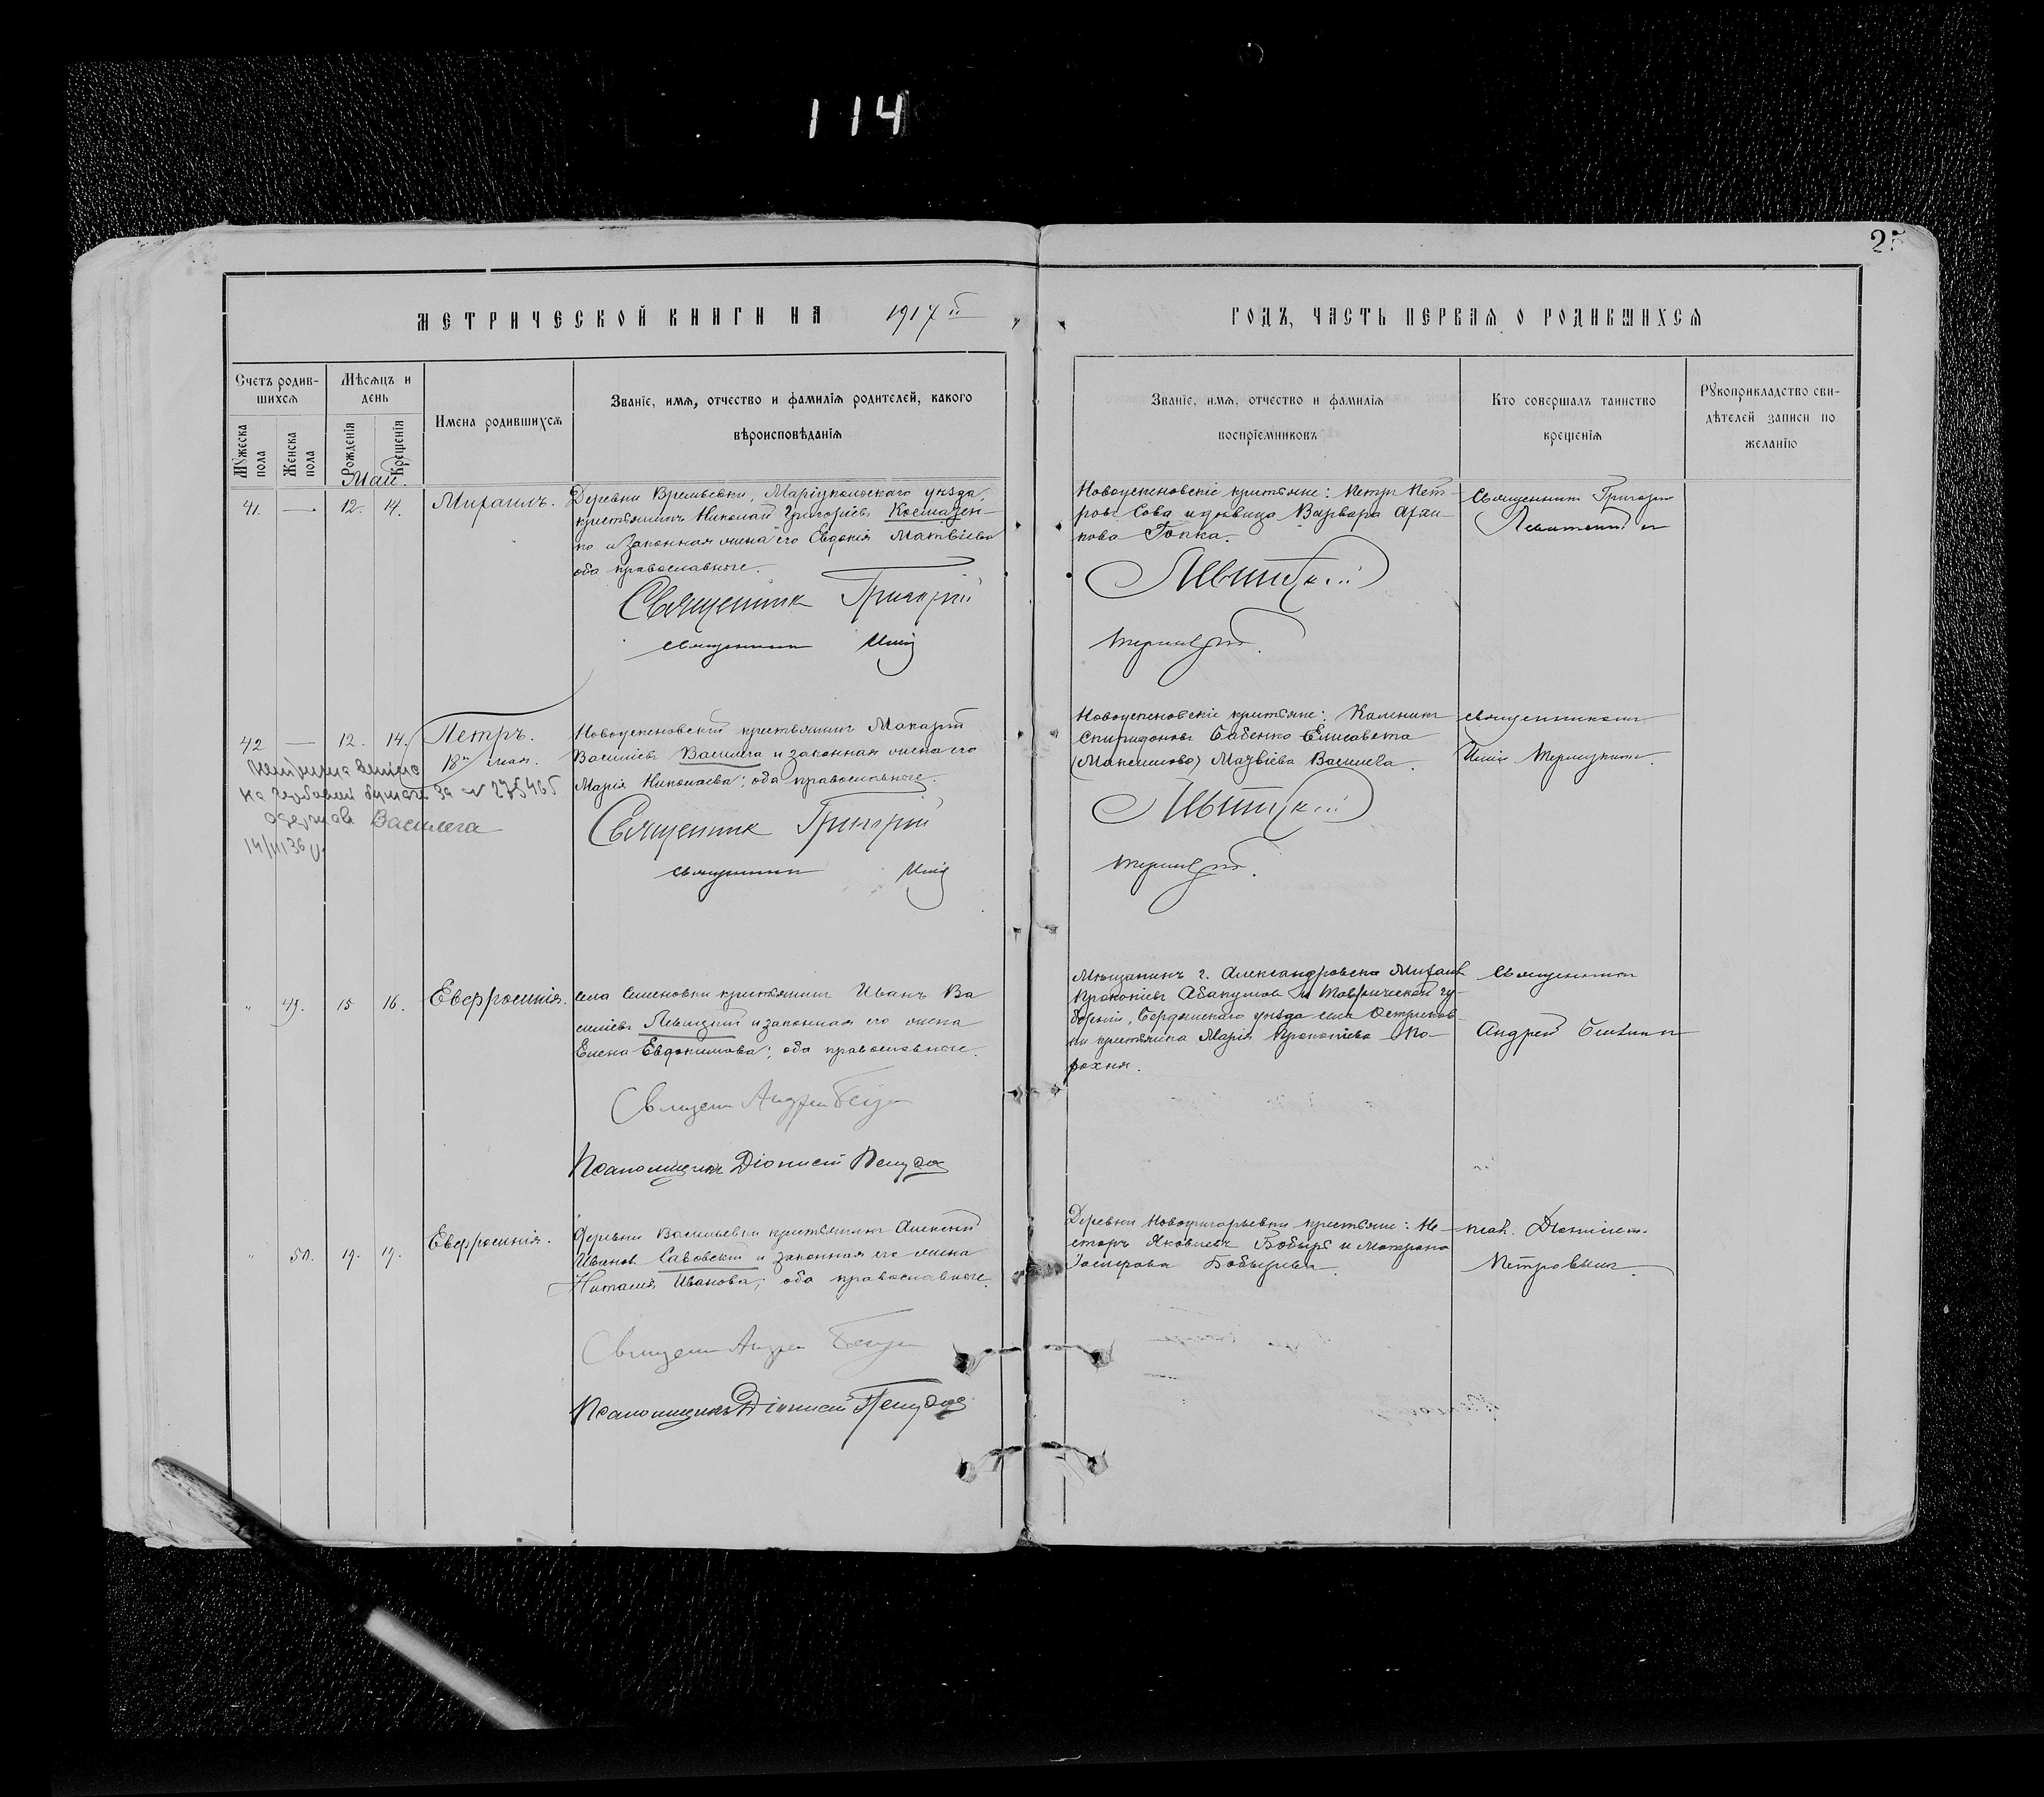 114
25
МЕТРИЧЕСКОЙ КНИГИ НА 1917 й
ГОДЪ, ЧАСТЬ ПЕРВАЯ О РОДИВШИХСЯ
Счетъ родив-
шихся
Мужеска пола
Женска пола
Мѣсяцъ и
день
Рожденія
Крещенія
Имена родившихся
Званіе, имя, отчество и фамилія родителей, какого
вѣроисповѣданія
Званіе, имя, отчество и фамилія
воспріемниковъ
Кто совершалъ таинство
крещенія
Рукоприкладство сви-
дѣтелей записи по
желанію
Май.
41. — 12. 14. Михаилъ.
Деревни Времьевки, Маріупольскаго уѣзда,
крестьянинъ Николай Григоріевъ
но и законная жена его Евдокія Матвіева
оба православные.
Священник Григорій
священник
Новоуспеновскіе крестьяне: Петръ Пет-
ровъ Сова и Варвара Архи-
пова Гопка.
Левитскій
Священник Григорій
42 — 12. 14. Петръ.
18 мая.
на гербовой бумаге за № 275465
одержав Василега
Новоуспеновскій крестьянинъ Макарій
Василіевъ Василега и законная жена его
Марія Николаева; оба православные.
Священник Григорій
священник
Новоуспеновскіе крестьяне: Калиникъ
Спиридоновъ Бабенко Елисавета
(Максимова) Василега.
Левитскій
священникомъ
" 49. 15 16. Евфросинія.
села Семеновки крестьянинъ Иванъ Ва
силіевъ Левицкій и законная его жена
Елена Евдокимова; оба православные.
Священ Андрей
Псаломщикъ Діонисій
Мѣщанинъ г. Александровска Михаилъ
Прокопіевъ Абакумовъ и Таврической гу-
берніи, Бердянскаго уѣзда села
крестьянка Марія Прокопіева По-
рохня.
Священник
Андрей
" 50. 19. 19. Евфросинія.
Деревни Васильевки крестьянинъ Алексей
Ивановъ Савовскій и законная его жена
Наталія Иванова; оба православные.
Священ Андрей
Псаломщикъ Діонисій
Деревни Новогригорьевки крестьяне: Не-
сторъ Яковлевъ Бобырь и Матрона
Бобырева.
Петровымъ.